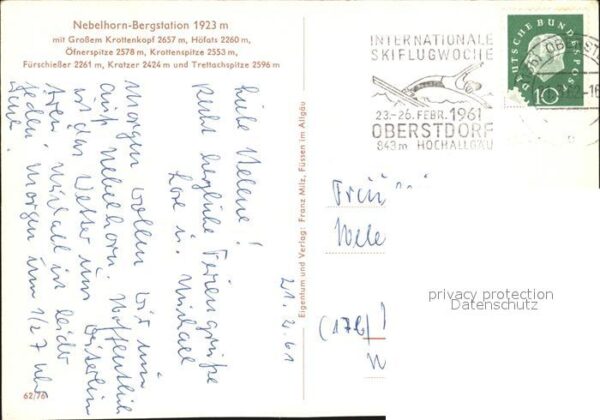 Nebelhorn-Bergstation 1923 m
mit Großem Krottenkopf 2657 m, Höfats 2260 m,
Öfnerspitze 2578 m, Krottenspitze 2553 m,
Fürschießer 2261 m, Kratzer 2424 m und Trettachspitze 2596 m
INTERNATIONALE
SKIFLUGWOCHE
23.-26. FEBR. 1961
OBERSTDORF
843 m HOCHALLGÄU
DEUTSCHE BUNDESPOST
10
Liebe Helene!
Recht herzliche Feriengrüße
Michael
21.2.61
Morgen wollen wir
aufs Nebelhorn. Hoffentlich
ist das Wetter
Michael ist leider
jeden Morgen um 1/2 7 Uhr
62/76
Eigentum und Verlag: Franz Milz, Füssen im Allgäu
(17b)
privacy protection
Datenschutz